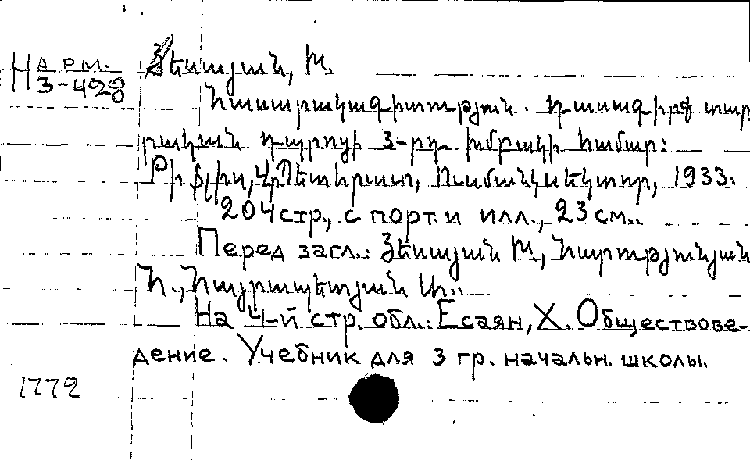 На рм.
3-428
Յեսայան, Խ.
Հասարակագիտություն. Դասագիրք տար-
րական դպրոցի 3-րդ խմբակի համար:
Թիֆլիս, Պետհրատ, Ուսմանկսեկտոր, 1933.
204 стр., с порт. и илл., 23 см.
Перед загл.: Յեսայան Խ., Հարությունյան
Հ., Հայրապետյան
На 4-й стр. обл.: Есаян, Х. Обществове-
дение. Учебник для 3 гр. начальн. школы.
1772